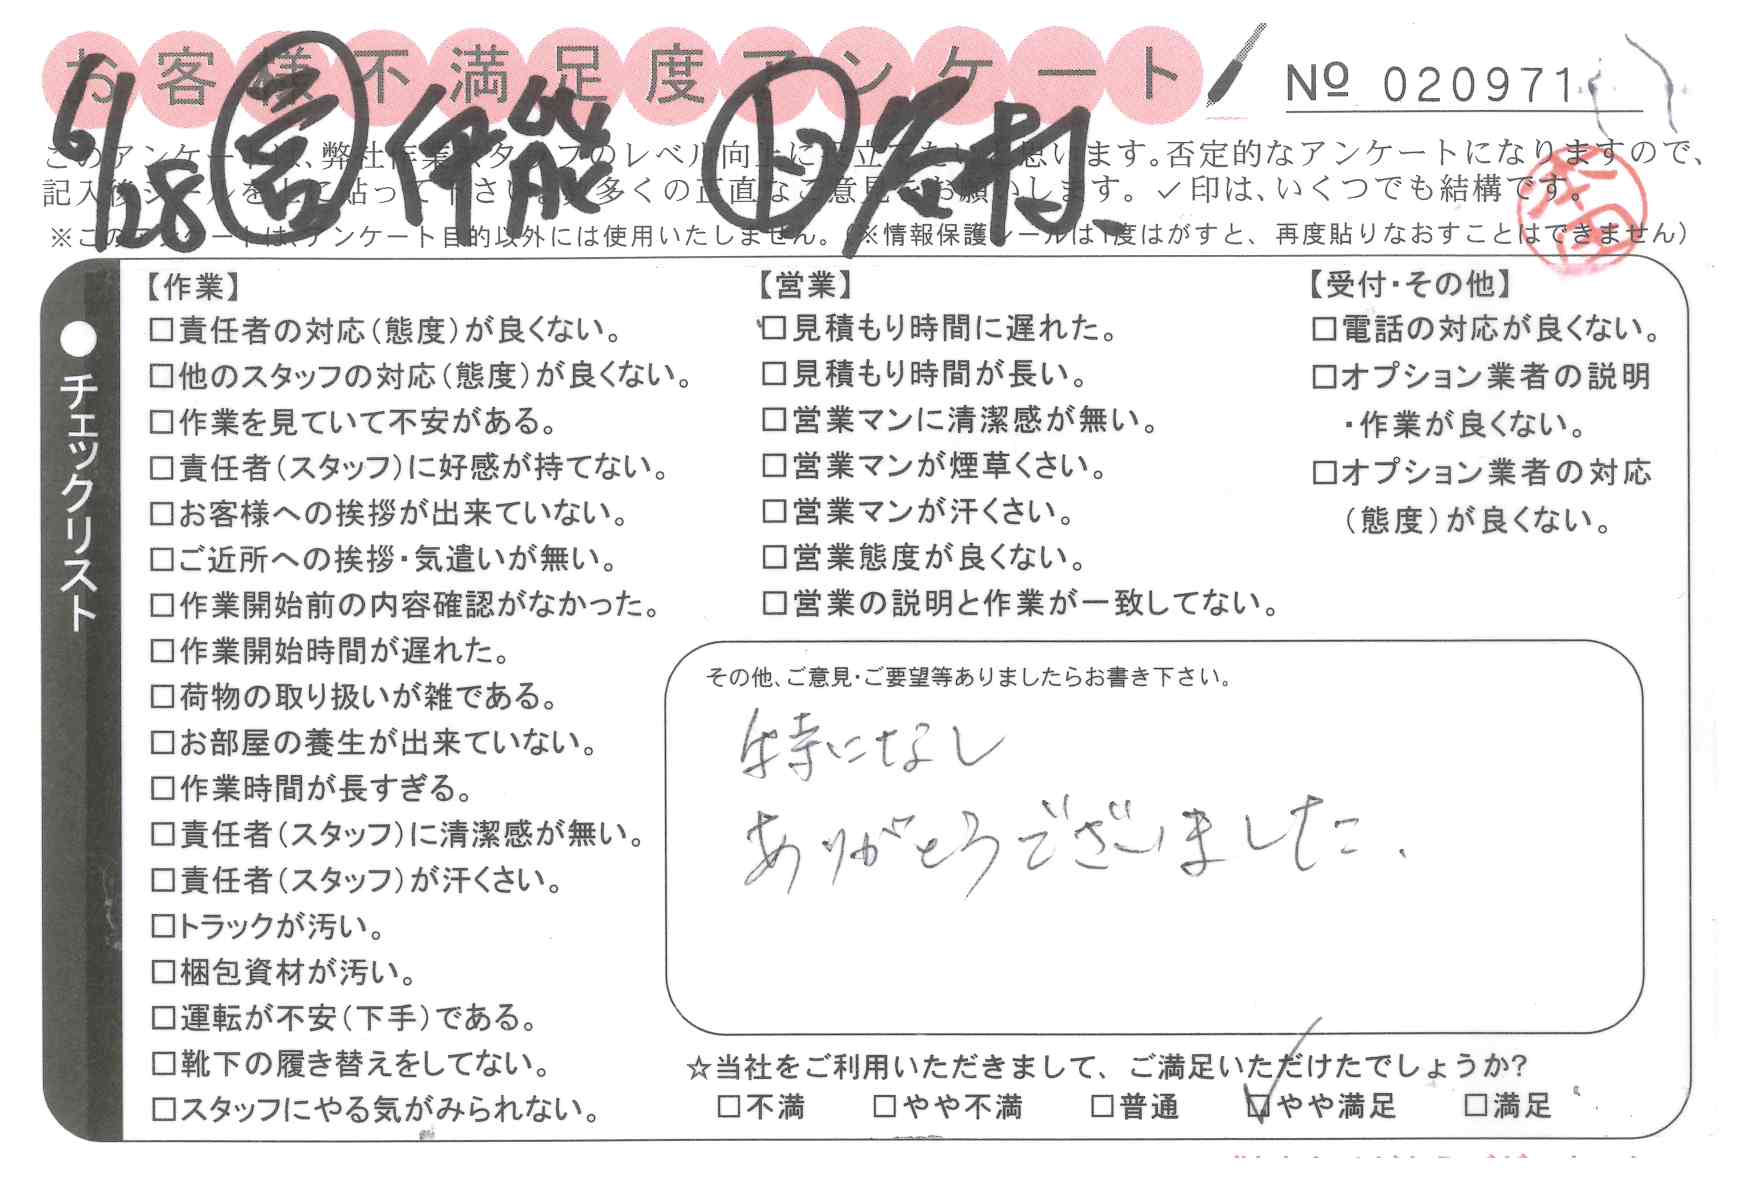 お客様不満足度アンケート
№ 020971
6/28 営 伊能 下 岩村
このアンケートは、弊社作業スタッフのレベル向上に役立てたいと思います。否定的なアンケートになりますので、
記入後シールを上に貼って下さい。多くの正直なご意見をお願いします。✓印は、いくつでも結構です。
※このアンケートは、アンケート目的以外には使用いたしません。(※情報保護シールは1度はがすと、再度貼りなおすことはできません)
●チェックリスト
【作業】
□責任者の対応(態度)が良くない。
□他のスタッフの対応(態度)が良くない。
□作業を見ていて不安がある。
□責任者(スタッフ)に好感が持てない。
□お客様への挨拶が出来ていない。
□ご近所への挨拶・気遣いが無い。
□作業開始前の内容確認がなかった。
□作業開始時間が遅れた。
□荷物の取り扱いが雑である。
□お部屋の養生が出来ていない。
□作業時間が長すぎる。
□責任者(スタッフ)に清潔感が無い。
□責任者(スタッフ)が汗くさい。
□トラックが汚い。
□梱包資材が汚い。
□運転が不安(下手)である。
□靴下の履き替えをしてない。
□スタッフにやる気がみられない。
【営業】
□見積もり時間に遅れた。
□見積もり時間が長い。
□営業マンに清潔感が無い。
□営業マンが煙草くさい。
□営業マンが汗くさい。
□営業態度が良くない。
□営業の説明と作業が一致してない。
【受付・その他】
□電話の対応が良くない。
□オプション業者の説明
・作業が良くない。
□オプション業者の対応
(態度)が良くない。
その他、ご意見・ご要望等ありましたらお書き下さい。
特になし
ありがとうございました.
☆当社をご利用いただきまして、ご満足いただけたでしょうか?
□不満 □やや不満 □普通 ☑やや満足 □満足